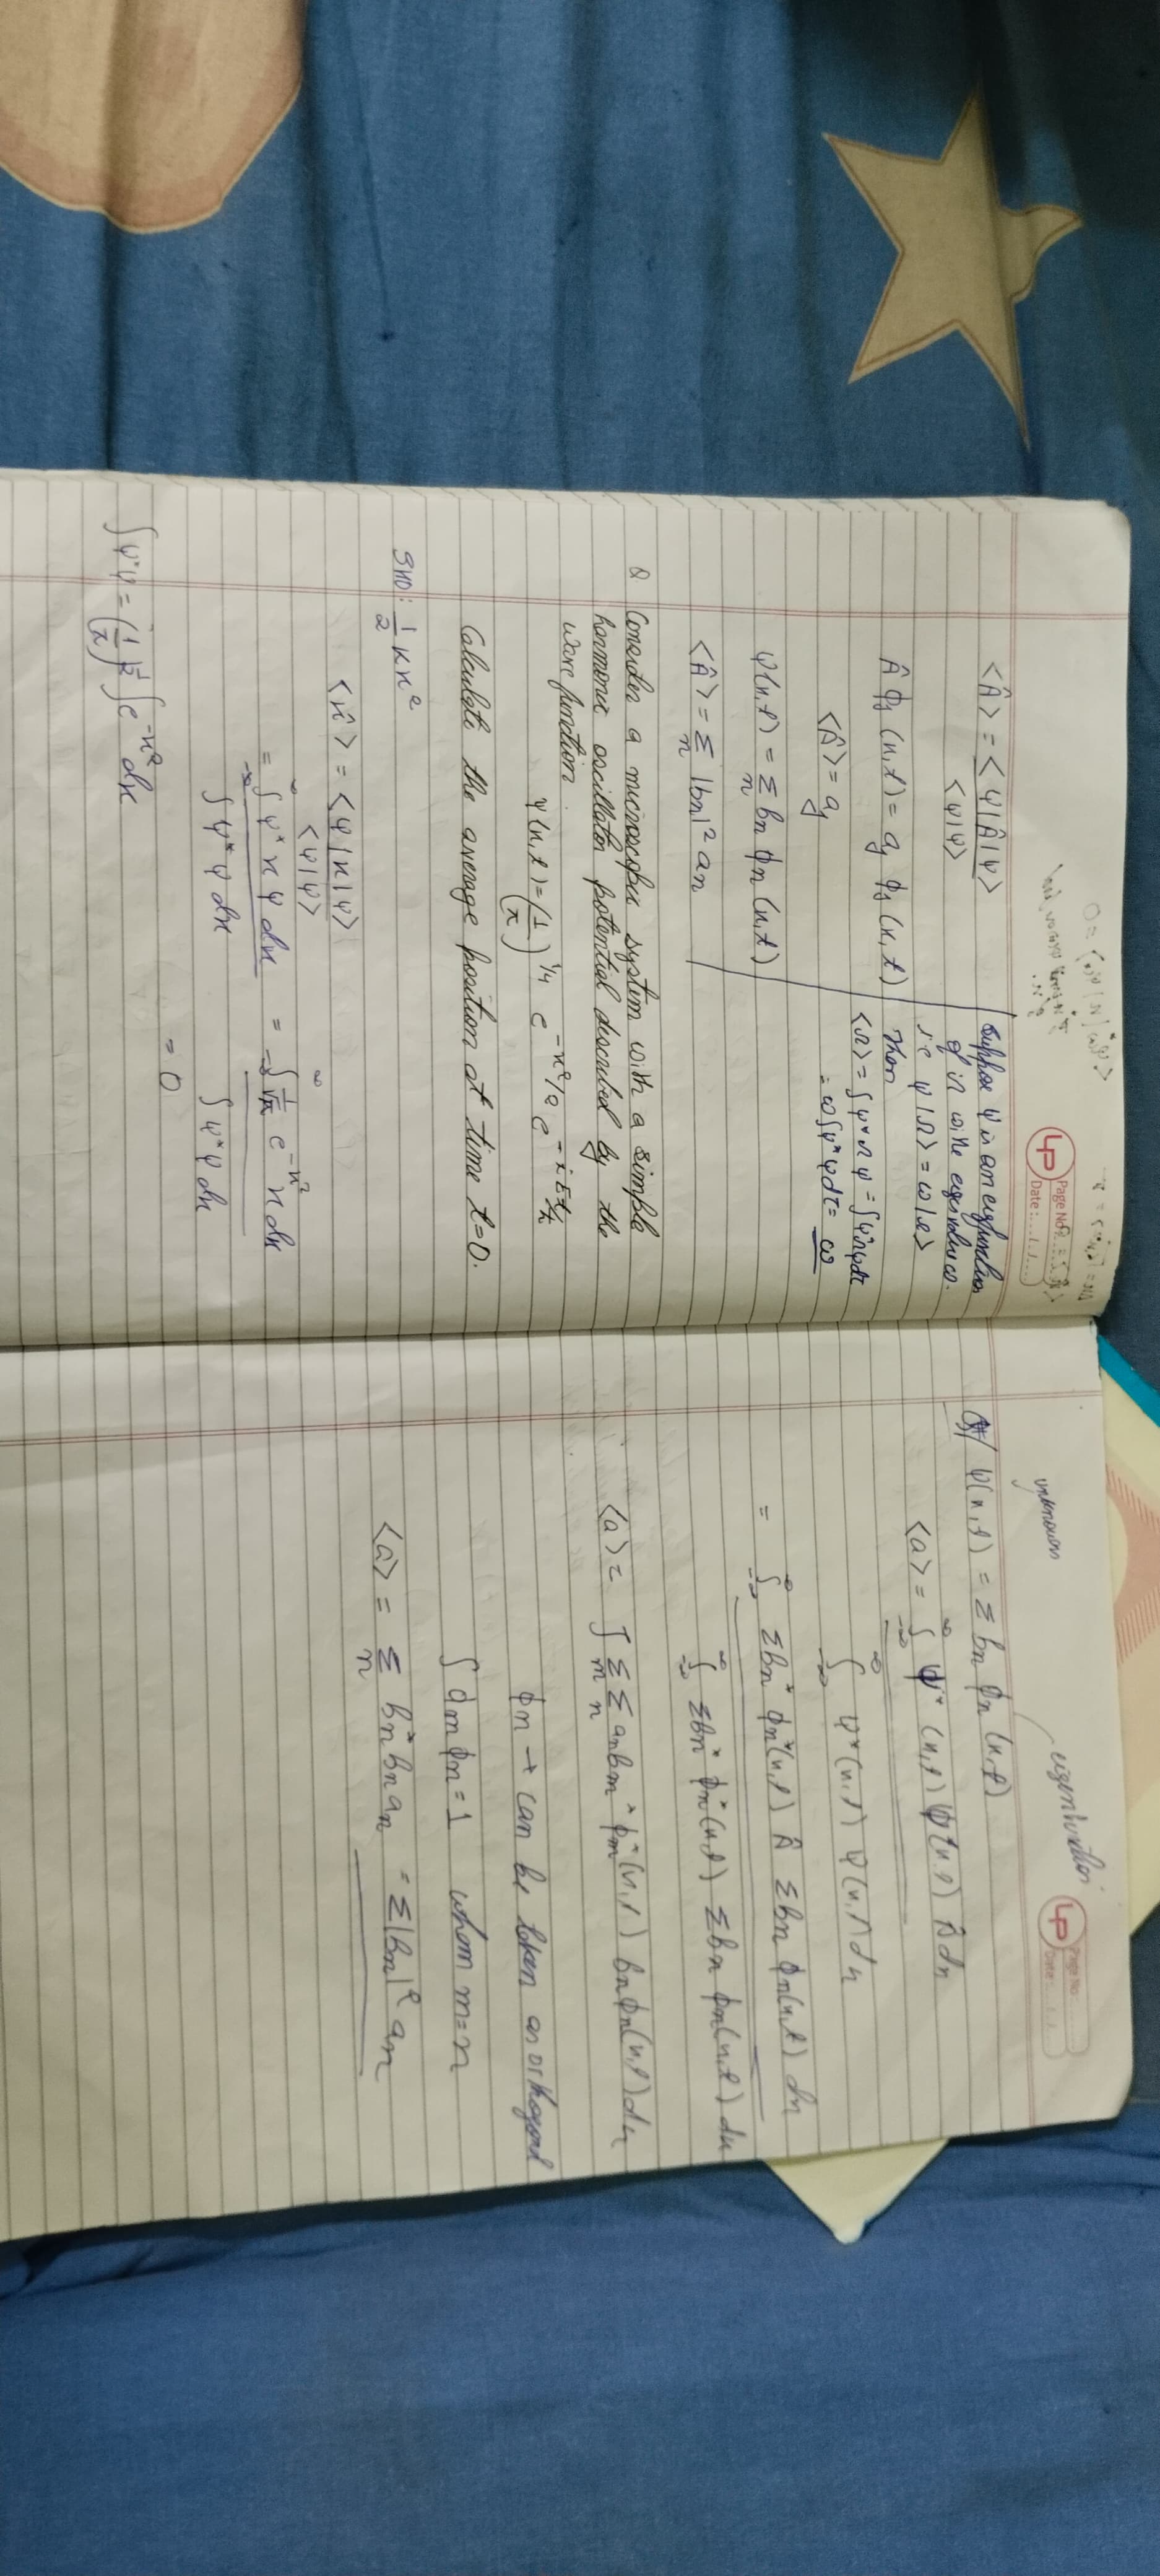 Page No.
Date:
<Â> = <ψ|Â|ψ>
<ψ|ψ>
Â ϕj (x,t) = aj ϕj (x,t)
<Â> = aj
ψ(x,t) = Σn bn ϕn (x,t)
<Â> = Σn |bn|² an
Suppose ψ is an eigenfunction
of Ω with eigenvalue ω.
Then
<Ω> = ∫ψ* Ω ψ = ∫ψ*Ωψdτ
= ω∫ψ*ψdτ = ω
Q Consider a microscopic system with a simple
harmonic oscillator potential described by the
wave function
ψ(x,t) = (1/π)^1/4 e^-x²/2 e^-iEt/ħ
Calculate the average position at time t=0.
SHO: 1/2 kx²
<x̂> = <ψ|x|ψ>
<ψ|ψ>
= ∫ψ* x ψ dx = ∫ 1/√π e^-x² x dx
∫ψ*ψ dx ∫ψ*ψ dx
= 0
∫ψ*ψ = (1/π)^1/2 ∫e^-x² dx
Page No:
Date:
unknown
eigenfunction
ψ(x,t) = Σ bn ϕn (x,t)
<a> = ∫ ψ* (x,t) ψ(x,t) Â dx
∫ ψ*(x,t) ψ(x,t) dx
= ∫ Σbn* ϕn*(x,t) Â Σbn ϕn(x,t) dx
∫ Σbn* ϕn*(x,t) Σbn ϕn(x,t) dx
<a> = ∫ Σm Σn an bm* ϕm*(x,t) bn ϕn(x,t) dx
ϕn → can be taken as orthogonal
∫ϕmϕn = 1 when m=n
<a> = Σn bn* bn an = Σ|bn|² an